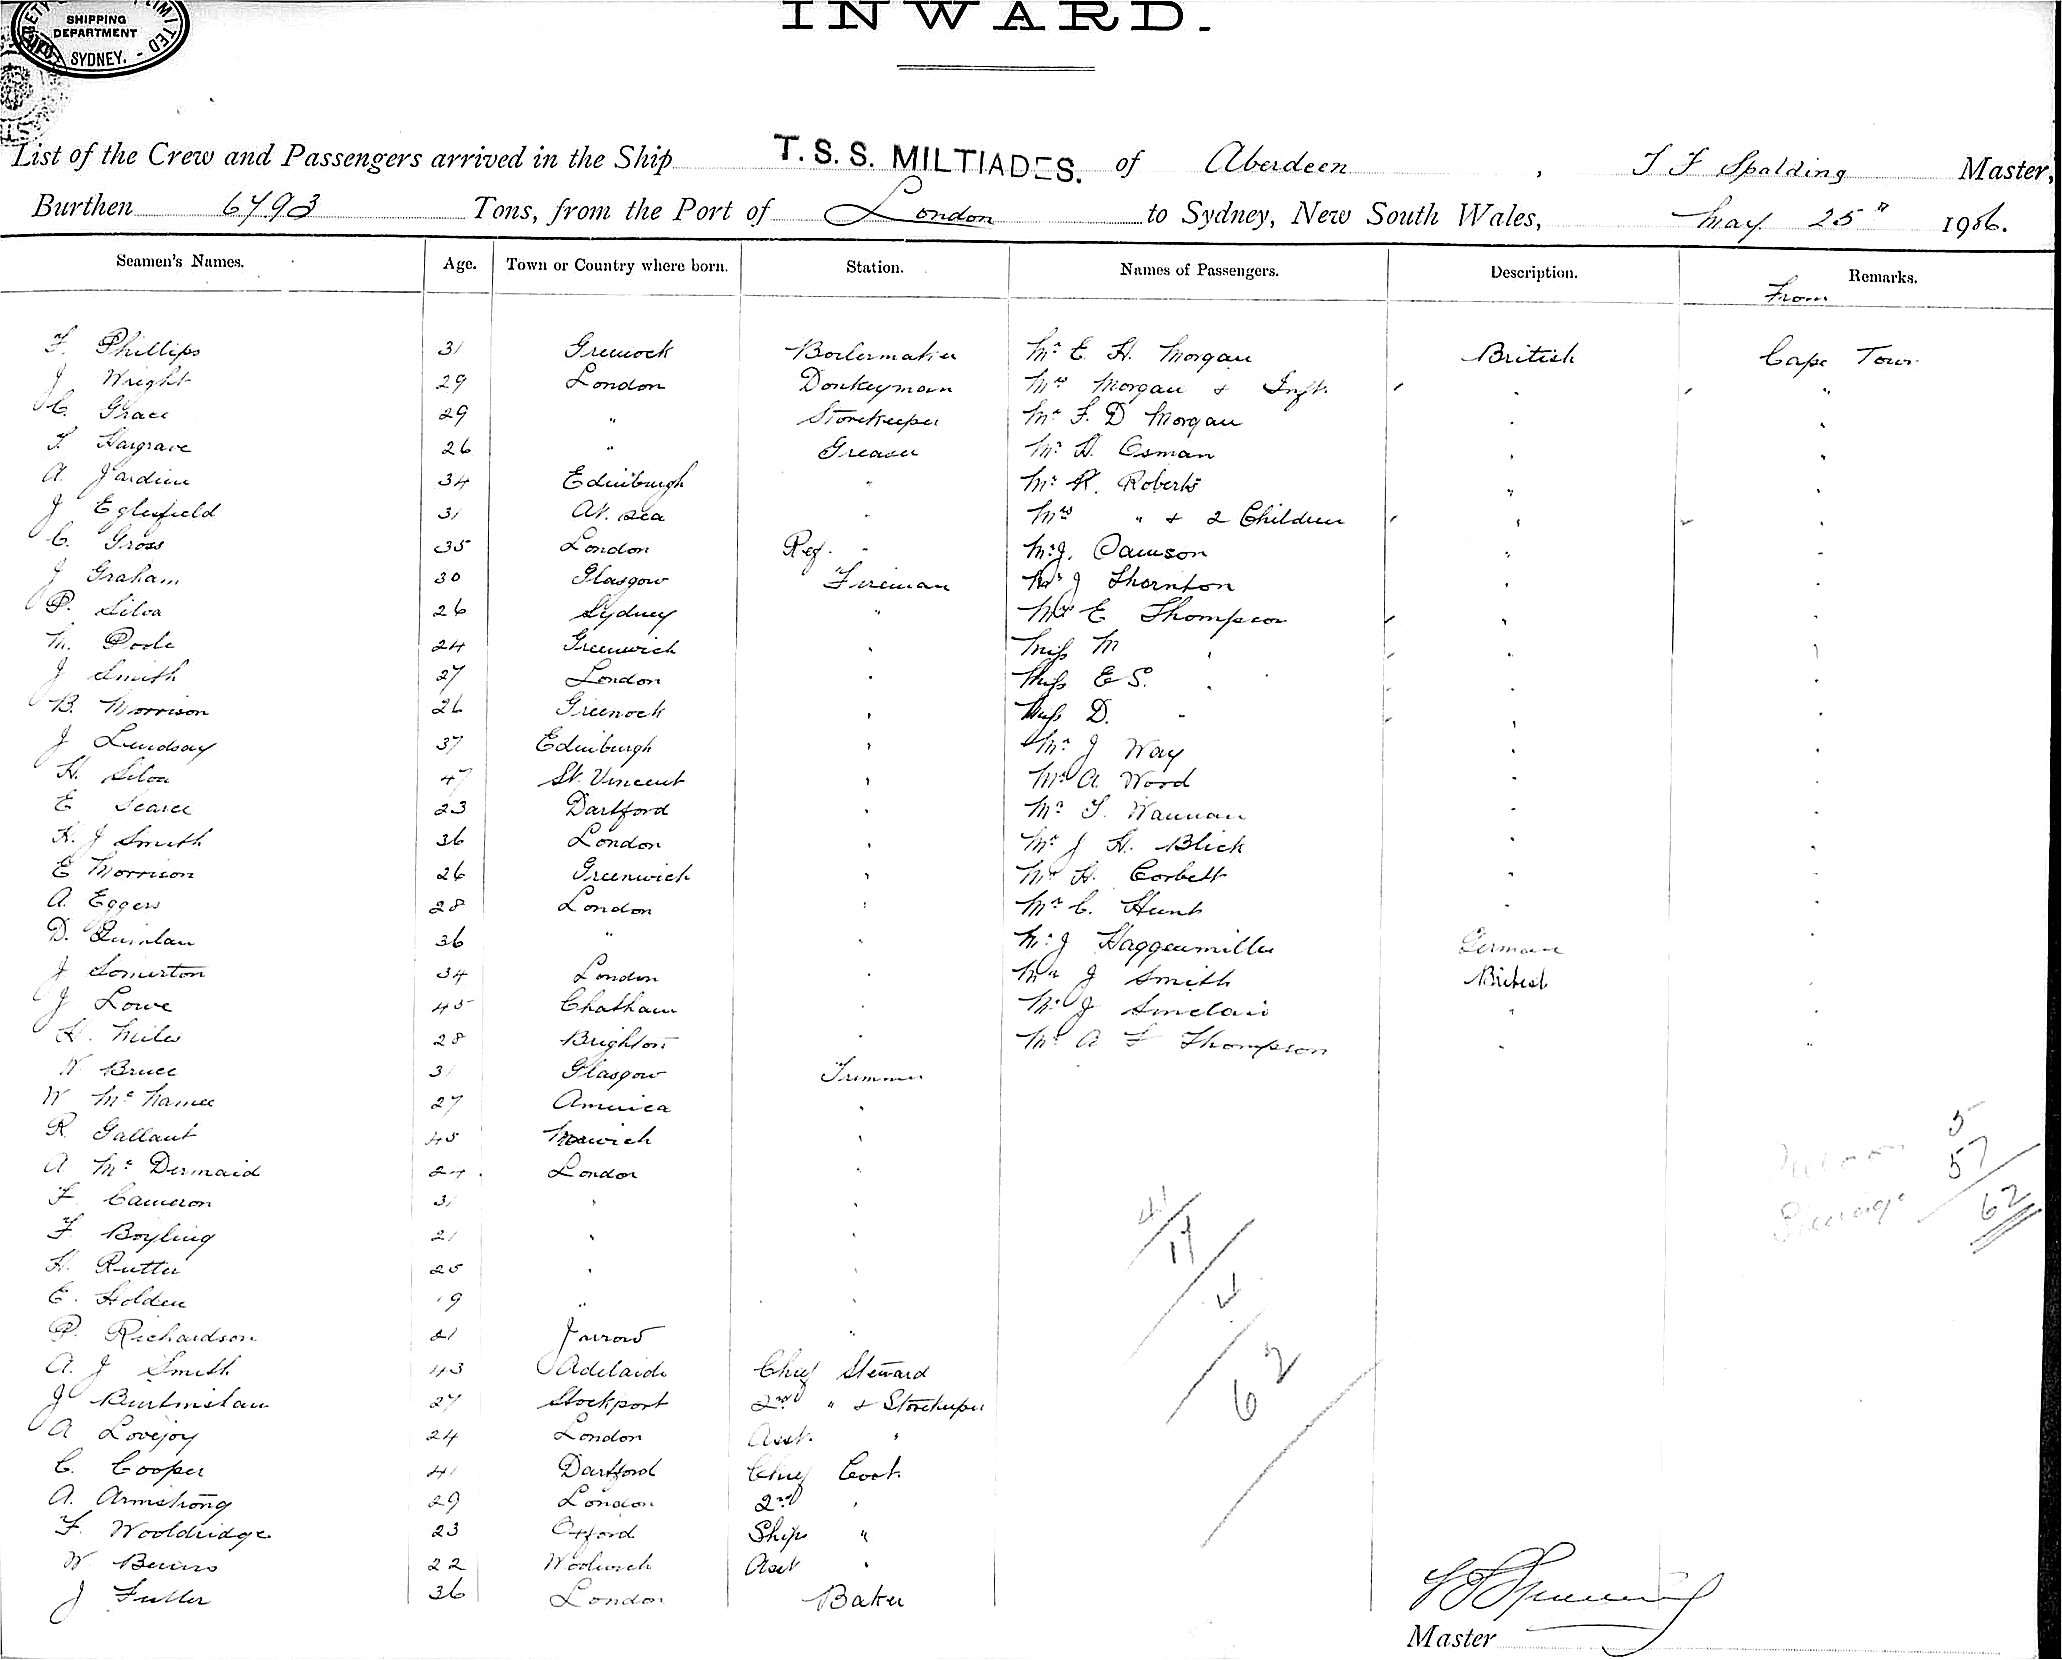 SHIPPING
DEPARTMENT
SYDNEY.
LIMITED
INWARD.
List of the Crew and Passengers arrived in the Ship T.S.S. MILTIADES. of Aberdeen, T F Spalding Master,
Burthen 6793 Tons, from the Port of London to Sydney, New South Wales, May 25" 1906.
Seamen's Names. Age. Town or Country where born. Station. Names of Passengers. Description. Remarks.
From
F. Phillips 31 Greenock Boilermaker Mr E. H. Morgan British Cape Town
J Wright 29 London Donkeyman Mrs Morgan & Inft. " "
C. Grace 29 " Storekeeper Mr F. D Morgan " "
T. Hargrave 26 " Greaser Mr H. Osman " "
A. Jardine 34 Edinburgh " Mr R. Roberts " "
J Eglesfield 31 At sea " Mrs " & 2 Children " "
C. Gross 35 London Ref. " Mr J. Dawson " "
J Graham 30 Glasgow Fireman Mr J Thornton " "
P. Silva 26 Sydney " Mrs E Thompson " "
M. Poole 24 Greenwich " Miss M " " "
J Smith 27 London " Miss E S. " " "
B. Morrison 26 Greenock " Miss D. " " "
J Lindsay 37 Edinburgh " Mr J Way " "
H. Silva 47 St. Vincent " Mr A Wood " "
E Searce 23 Dartford " Mr T. Wannan " "
H. J Smith 36 London " Mr J H. Blick " "
E Morrison 26 Greenwich " Mr H. Corbett " "
A. Eggers 28 London " Mr C. Hunt " "
D. Quinlan 36 " " Mr J Haggenmiller German "
J Somerton 34 London " Mr J Smith British "
J Lowe 45 Chatham " Mr J Sinclair " "
H. Miles 28 Brighton " Mr A F Thompson " "
W Bruce 31 Glasgow Trimmer
W McNamee 27 America "
R Gallant 45 "
A McDermaid 24 London "
F Cameron 31 " "
F. Boyling 21 " "
H. Rutter 25 " "
E. Holden 19 " "
P. Richardson 21 Jarrow "
A. J Smith 43 Adelaide Chief Steward
J 27 Stockport 2nd " & Storekeeper
A Lovejoy 24 London Asst. "
C. Cooper 41 Dartford Chief Cook
A. Armstrong 29 London 2nd "
F. Wooldridge 23 Oxford Ship "
W 22 Woolwich Asst "
J Fuller 36 London Baker
5
57
Steerage 62
41
17
4
62
Master